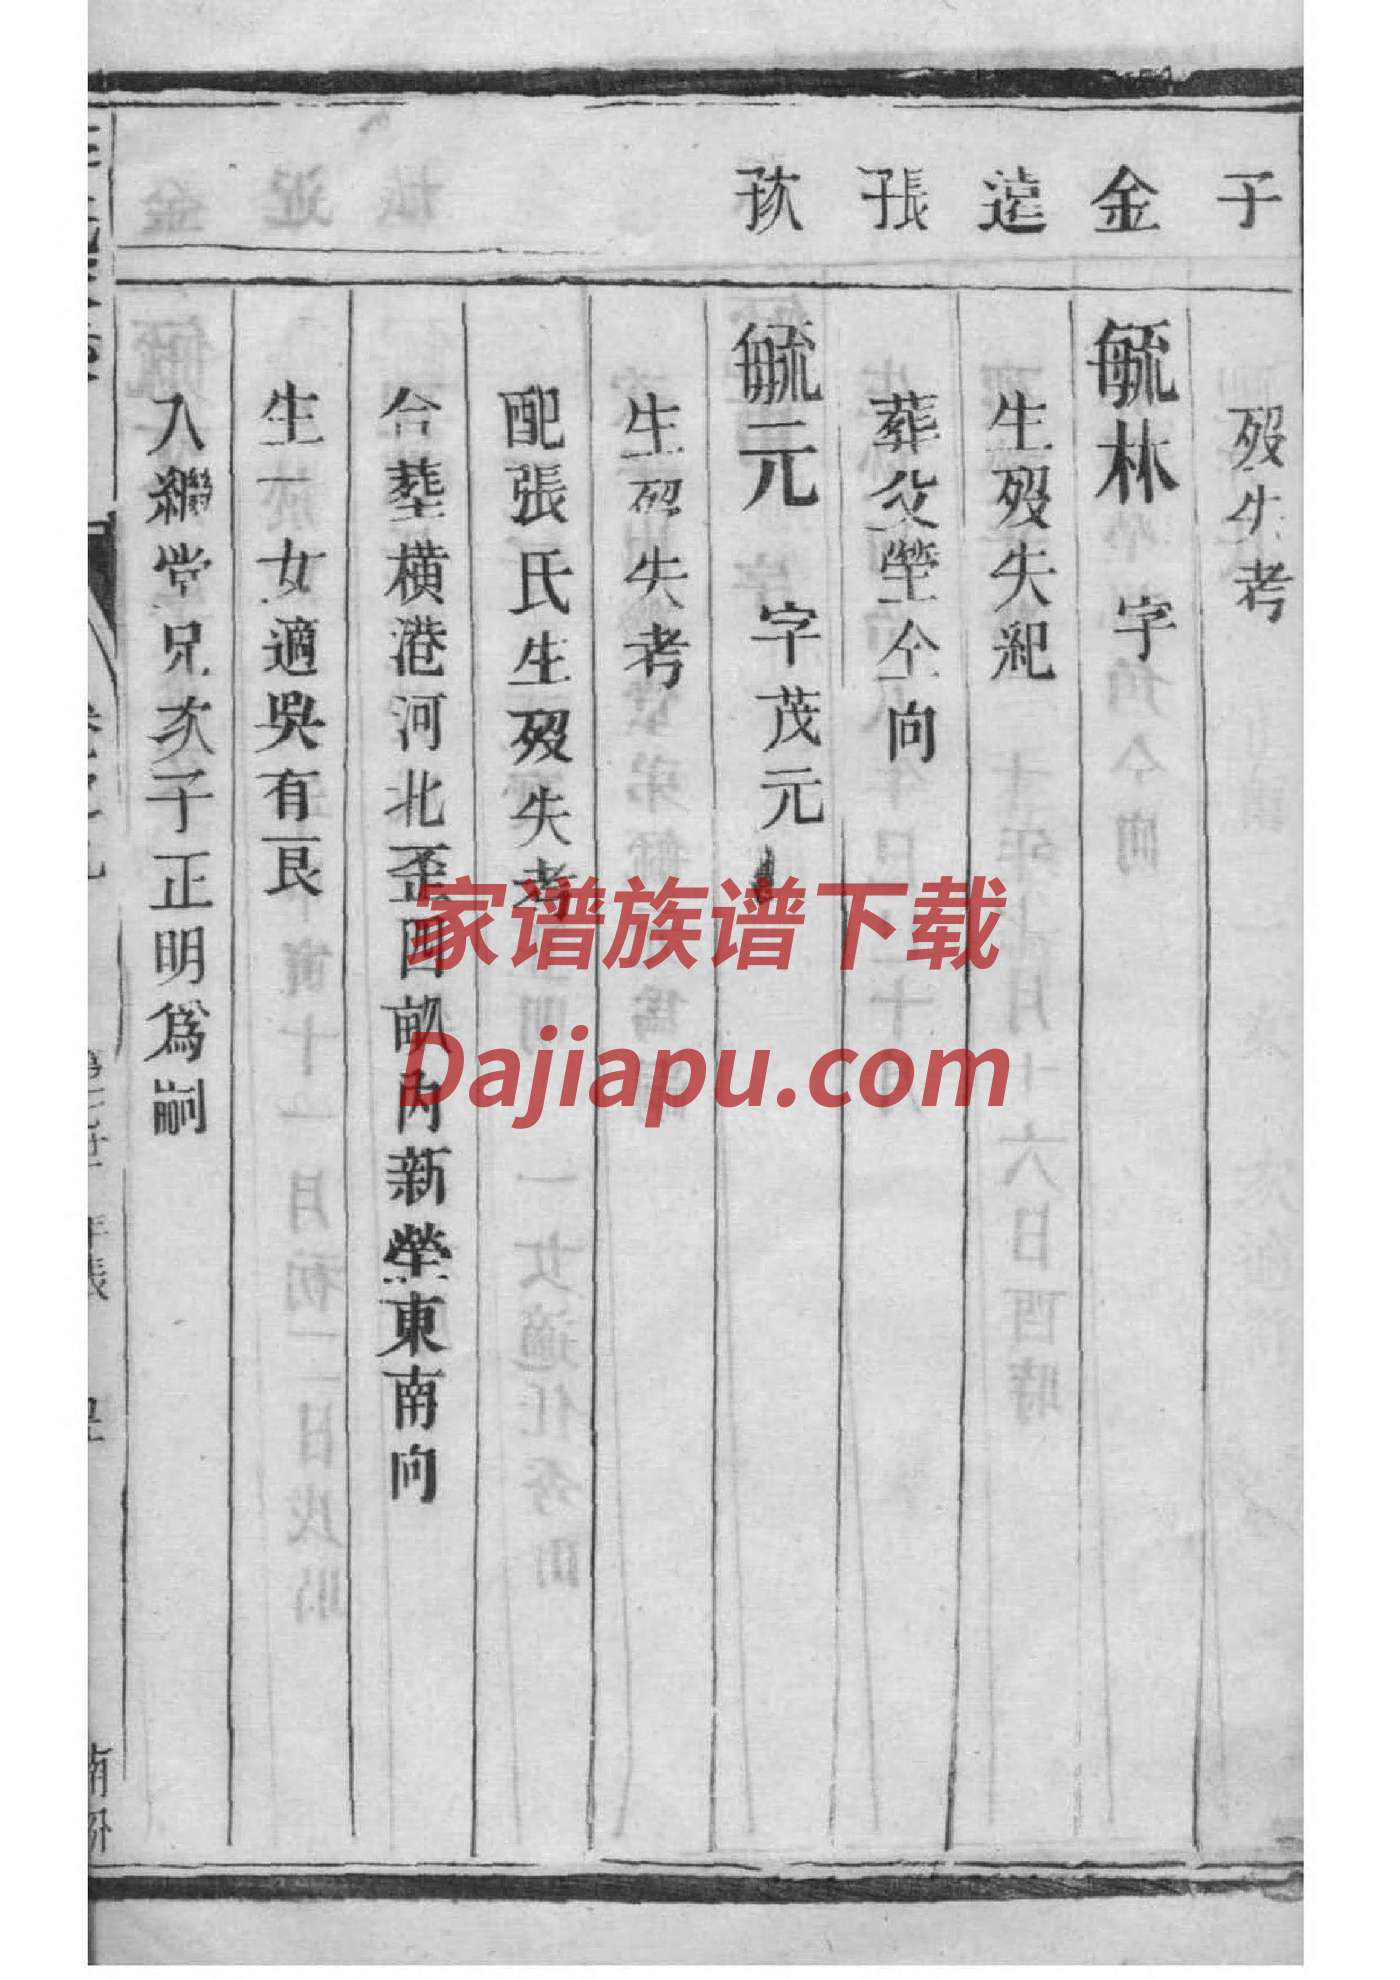 子
金
遠
張
孩
歿失考
毓林 字
生歿失紀
葬父塋仝向
毓元 字茂元
生歿失考
配張氏生歿失考
合塟横港河北歪四畝內新塋東南向
生 女適吳有艮
入繼堂兄次子正明爲嗣
家谱族谱下载
Dajiapu.com